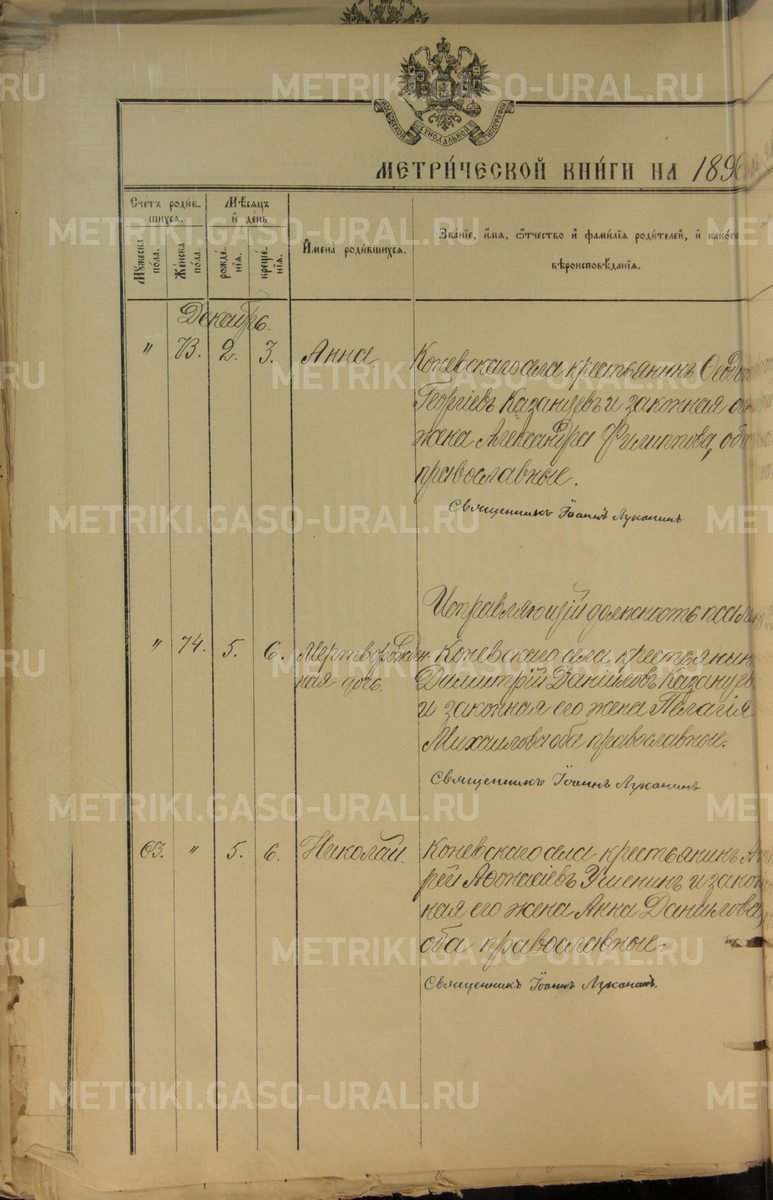 МОСКОВСКОЙ СѴНОДАЛЬНОЙ ТИПОГРАФІИ
МЕТРИ́ЧЕСКОЙ КНИ́ГИ НА 1896
Счетъ роди́в-
шихсѧ.
Мꙋ́жеска
по́ла.
Же́нска
по́ла.
Мѣ́сѧцъ
и҆ день
рожде́-
нїѧ.
креще́-
нїѧ.
И҆мена̀ роди́вшихсѧ.
Зва́нїе, и҆́мѧ, ѻ҆́тчество и҆ фами́лїѧ роди́телей, и҆ како́гѡ
вѣроисповѣ́данїѧ.
Декабрь.
" 73. 2. 3. Анна
Коневскаго села крестьянинъ
Георгіевъ Казанцевъ и законная
жена Александра Филиппова,
православные.
Священникъ Іоаннъ Луканинъ
Исправляющій должность
" 74. 5. 6. Мертворожден- Коневскаго села крестьянинъ
ная дочь. Димитрій Даниловъ Казанцевъ
и законная его жена Пелагія
Михаилова оба православные.
Священникъ Іоаннъ Луканинъ
63. " 5. 6. Николай. Коневскаго села крестьянинъ
рей Афонасіевъ и закон
ная его жена Анна Данилова,
оба православные.
Священникъ Іоаннъ Луканинъ.
METRIKI.GASO-URAL.RU